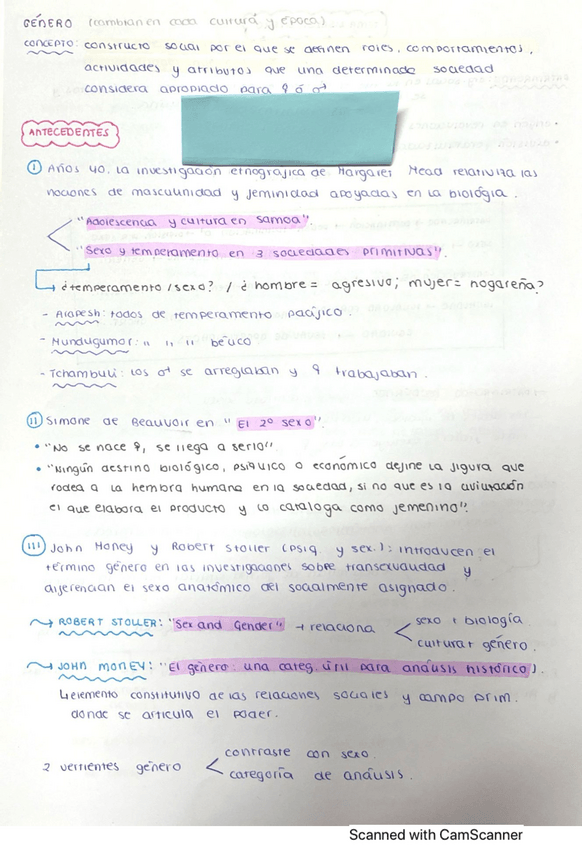 GÉNERO (cambian en cada cultura y época)
CONCEPTO: constructo social por el que se definen roles, comportamientos,
actividades y atributos que una determinada sociedad
considera apropiado para ♀ ó ♂
ANTECEDENTES
① Años 40, la investigación etnográfica de Margaret Mead relativiza las
nociones de masculinidad y feminidad apoyadas en la biología.
"Adolescencia y cultura en Samoa".
"Sexo y temperamento en 3 sociedades primitivas".
¿temperamento / sexo? / ¿ hombre = agresivo; mujer = hogareña?
- Arapesh: todos de temperamento pacífico.
- Mundugumor: " " " bélico.
- Tchambuli: los ♂ se arreglaban y ♀ trabajaban.
II Simone de Beauvoir en "El 2º sexo".
• "No se nace ♀, se llega a serlo".
• "Ningún destino biológico, psíquico o económico define la figura que
rodea a la hembra humana en la sociedad, si no que es la civilización
el que elabora el producto y lo cataloga como femenino".
III John Money y Robert Stoller (psiq. y sex.): introducen el
término género en las investigaciones sobre transexualidad y
diferencian el sexo anatómico del socialmente asignado.
ROBERT STOLLER: "Sex and Gender" → relaciona
sexo + biología
cultura + género.
JOHN MONEY: "El género: una categ. útil para análisis histórico).
↳ elemento constitutivo de las relaciones sociales y campo prim.
donde se articula el poder.
2 vertientes género
contraste con sexo.
categoría de análisis.
Scanned with CamScanner